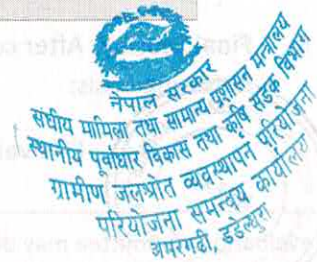 नेपाल सरकार
संघीय मामिला तथा सामान्य प्रशासन मन्त्रालय
स्थानीय पूर्वाधार विकास तथा कृषि सडक विभाग
ग्रामीण जलश्रोत व्यवस्थापन परियोजना
परियोजना समन्वय कार्यालय
अमरगढी डडेल्धुरा